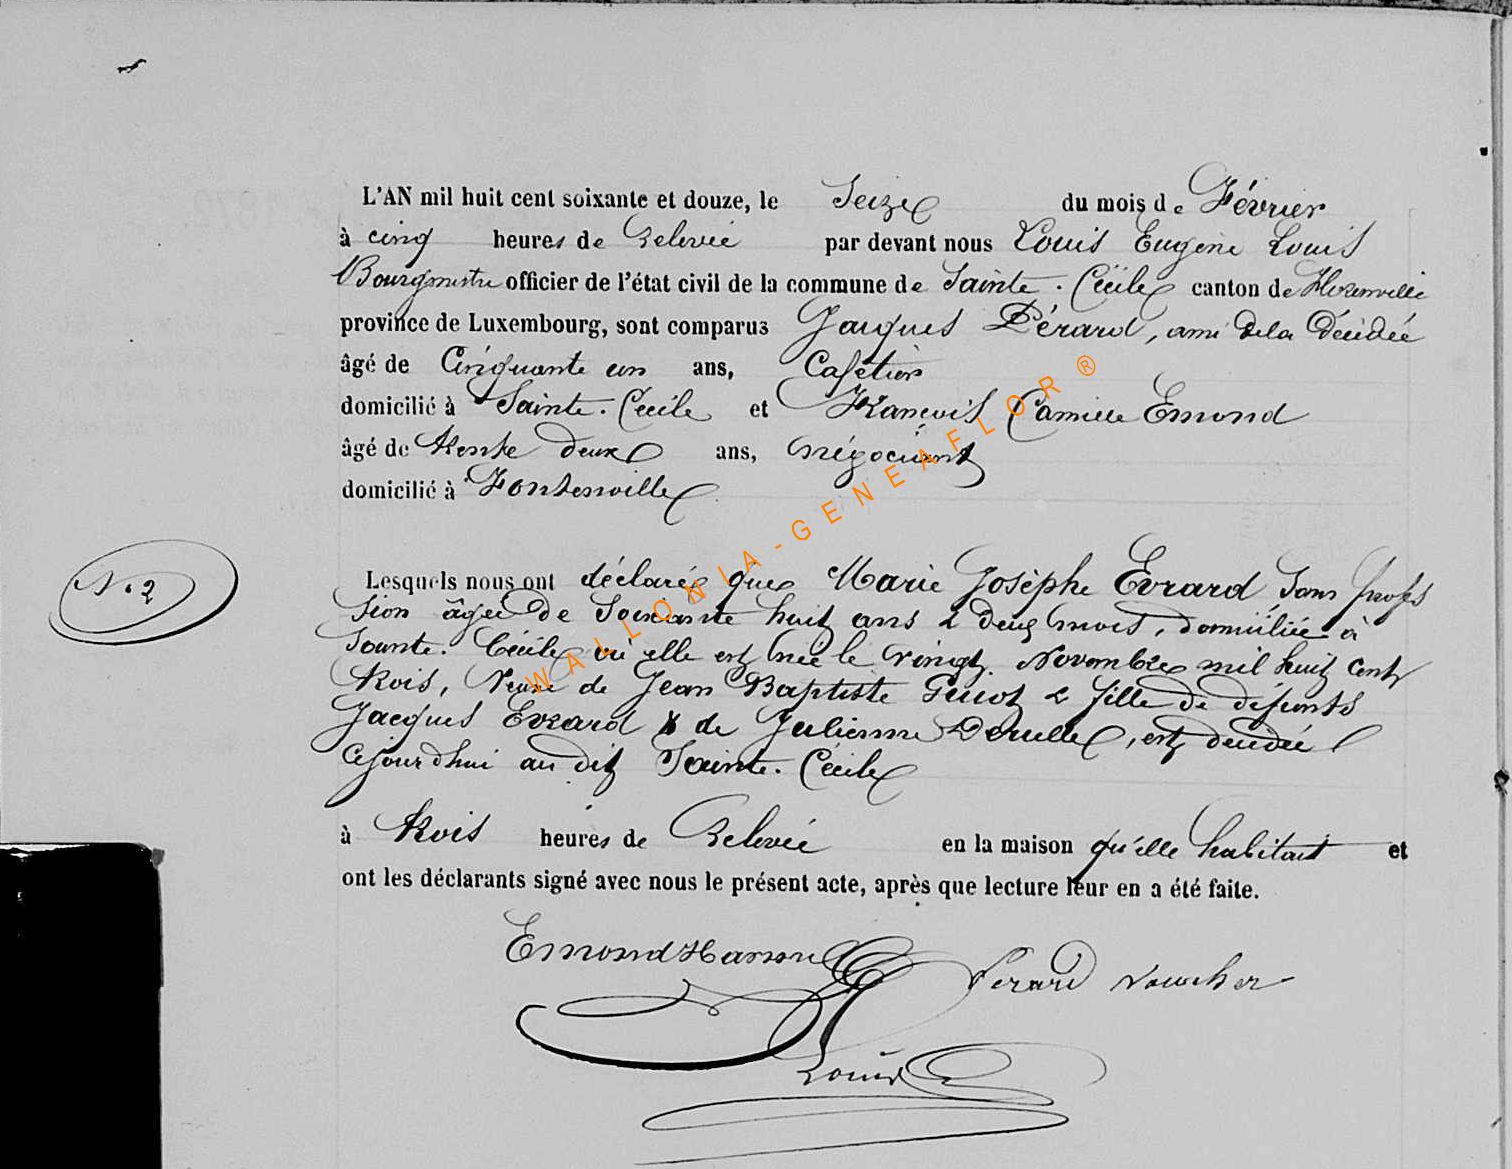 L'AN mil huit cent soixante et douze, le Seize du mois de Février
à cinq heures de Relevée par devant nous Louis Eugène Louis
Bourgmestre officier de l'état civil de la commune de Sainte-Cécile canton de Florenville
province de Luxembourg, sont comparus Jacques Pérard, ami de la décédée
âgé de Cinquante un ans, Cafétier
domicilié à Sainte-Cécile et François Camille Emond
âgé de trente deux ans, négociant
domicilié à Fontenoille
N. 2
Lesquels nous ont déclaré que Marie Josèphe Evrard sans profes
sion âgée de Soixante huit ans & deux mois, domiciliée à
Sainte-Cécile où elle est née le vingt Novembre mil huit cent
trois, Veuve de Jean Baptiste & fille de défunts
Jacques Evrard & de Julienne, est décédée
Cejourdhui au dit Sainte-Cécile
à trois heures de Relevée en la maison qu'elle habitait et
ont les déclarants signé avec nous le présent acte, après que lecture leur en a été faite.
Emond Pérard
Louis
WALLONIA-GENEAFLOR®